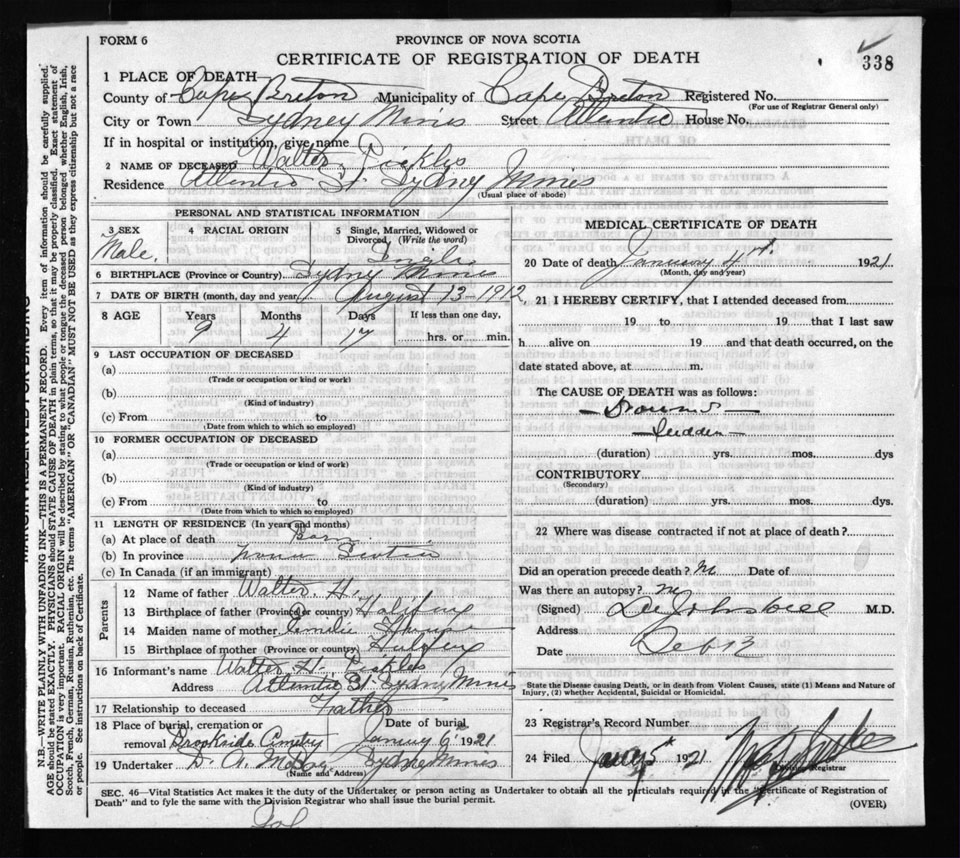 FORM 6
PROVINCE OF NOVA SCOTIA
CERTIFICATE OF REGISTRATION OF DEATH
338
1 PLACE OF DEATH
County of Cape Breton Municipality of Cape Breton Registered No.
(For use of Registrar General only)
City or Town Sydney Mines Street Atlantic House No.
If in hospital or institution, give name
2 NAME OF DECEASED Walter Pickles
Residence Atlantic St. Sydney Mines
(Usual place of abode)
PERSONAL AND STATISTICAL INFORMATION
3 SEX
Male.
4 RACIAL ORIGIN
5 Single, Married, Widowed or
Divorced, (Write the word)
Single
6 BIRTHPLACE (Province or Country) Sydney Mines
7 DATE OF BIRTH (month, day and year) August 13-1912
8 AGE Years Months Days If less than one day,
9 4 17 hrs. or min.
9 LAST OCCUPATION OF DECEASED
(a)
(Trade or occupation or kind of work)
(b)
(Kind of industry)
(c) From to
(Date from which to which so employed)
10 FORMER OCCUPATION OF DECEASED
(a)
(Trade or occupation or kind of work)
(b)
(Kind of industry)
(c) From to
(Date from which to which so employed)
11 LENGTH OF RESIDENCE (In years and months)
(a) At place of death Born
(b) In province Nova Scotia
(c) In Canada (if an immigrant)
Parents
12 Name of father Walter. H.
13 Birthplace of father (Province or country) Halifax
14 Maiden name of mother Emilie
15 Birthplace of mother (Province or country) Halifax
16 Informant's name Walter H. Pickles
Address Atlantic St Sydney Mines
17 Relationship to deceased Father
18 Place of burial, cremation or Date of burial
removal Brookside Cemetry January 6 1921
19 Undertaker Sydney Mines
(Name and Address)
MEDICAL CERTIFICATE OF DEATH
20 Date of death January 4th. 1921
(Month, day and year)
21 I HEREBY CERTIFY, that I attended deceased from
19 to 19 that I last saw
h alive on 19 and that death occurred, on the
date stated above, at m.
The CAUSE OF DEATH was as follows:
Sudden
(duration) yrs. mos. dys
CONTRIBUTORY
(Secondary)
(duration) yrs. mos. dys.
22 Where was disease contracted if not at place of death?
Did an operation precede death? Date of
Was there an autopsy?
(Signed) M.D.
Address
Date Feb 13
State the Disease causing Death, or in death from Violent Causes, state (1) Means and Nature of
Injury, (2) whether Accidental, Suicidal or Homicidal.
23 Registrar's Record Number
24 Filed 1921
Division Registrar
SEC. 46—Vital Statistics Act makes it the duty of the Undertaker or person acting as Undertaker to obtain all the particulars required in the "Certificate of Registration of
Death" and to fyle the same with the Division Registrar who shall issue the burial permit.
(OVER)
MARGIN RESERVED FOR BINDING
N.B.—WRITE PLAINLY WITH UNFADING INK—THIS IS A PERMANENT RECORD. Every item of information should be carefully supplied.
AGE should be stated EXACTLY. PHYSICIANS should STATE CAUSE OF DEATH in plain terms, so that it may be properly classified. Exact statement of
OCCUPATION is very important. RACIAL ORIGIN will be described by stating to what people or tongue the deceased person belonged whether English, Irish,
Scotch, French, German, Russian, Ruthenian, etc. The terms "AMERICAN" OR "CANADIAN" MUST NOT BE USED as they express citizenship but not a race
or people. See instructions on back of Certificate.